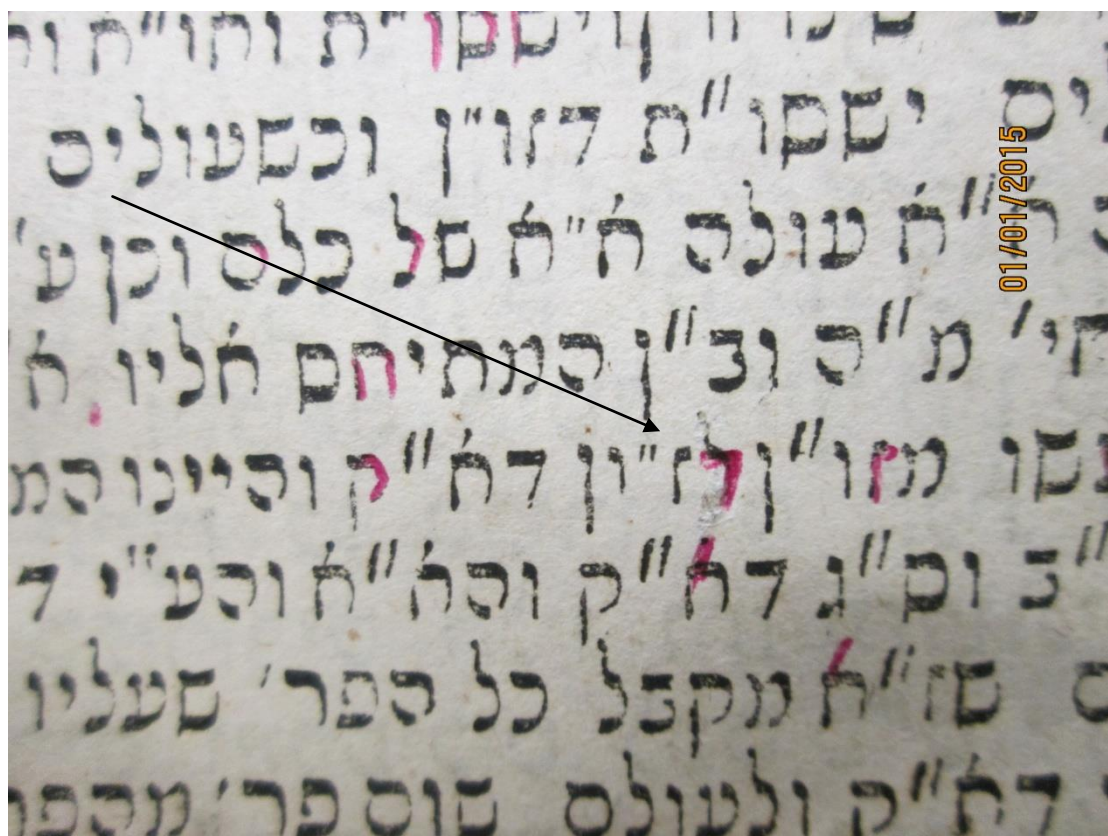 ים ישסו"ת דזו"ן וכשעולים
א"א עולה א"א של כלם וכן ע'
מ"ה וב"ן המתיחס אליו א
מזו"ן לז"ון דא"ק והיינו המ
"ב וס"ג דא"ק והא"א והע"י ד
ם שז"א מקבל כל הפר' שעליו
דא"ק ולעולם שום פר' מהפר
01/01/2015